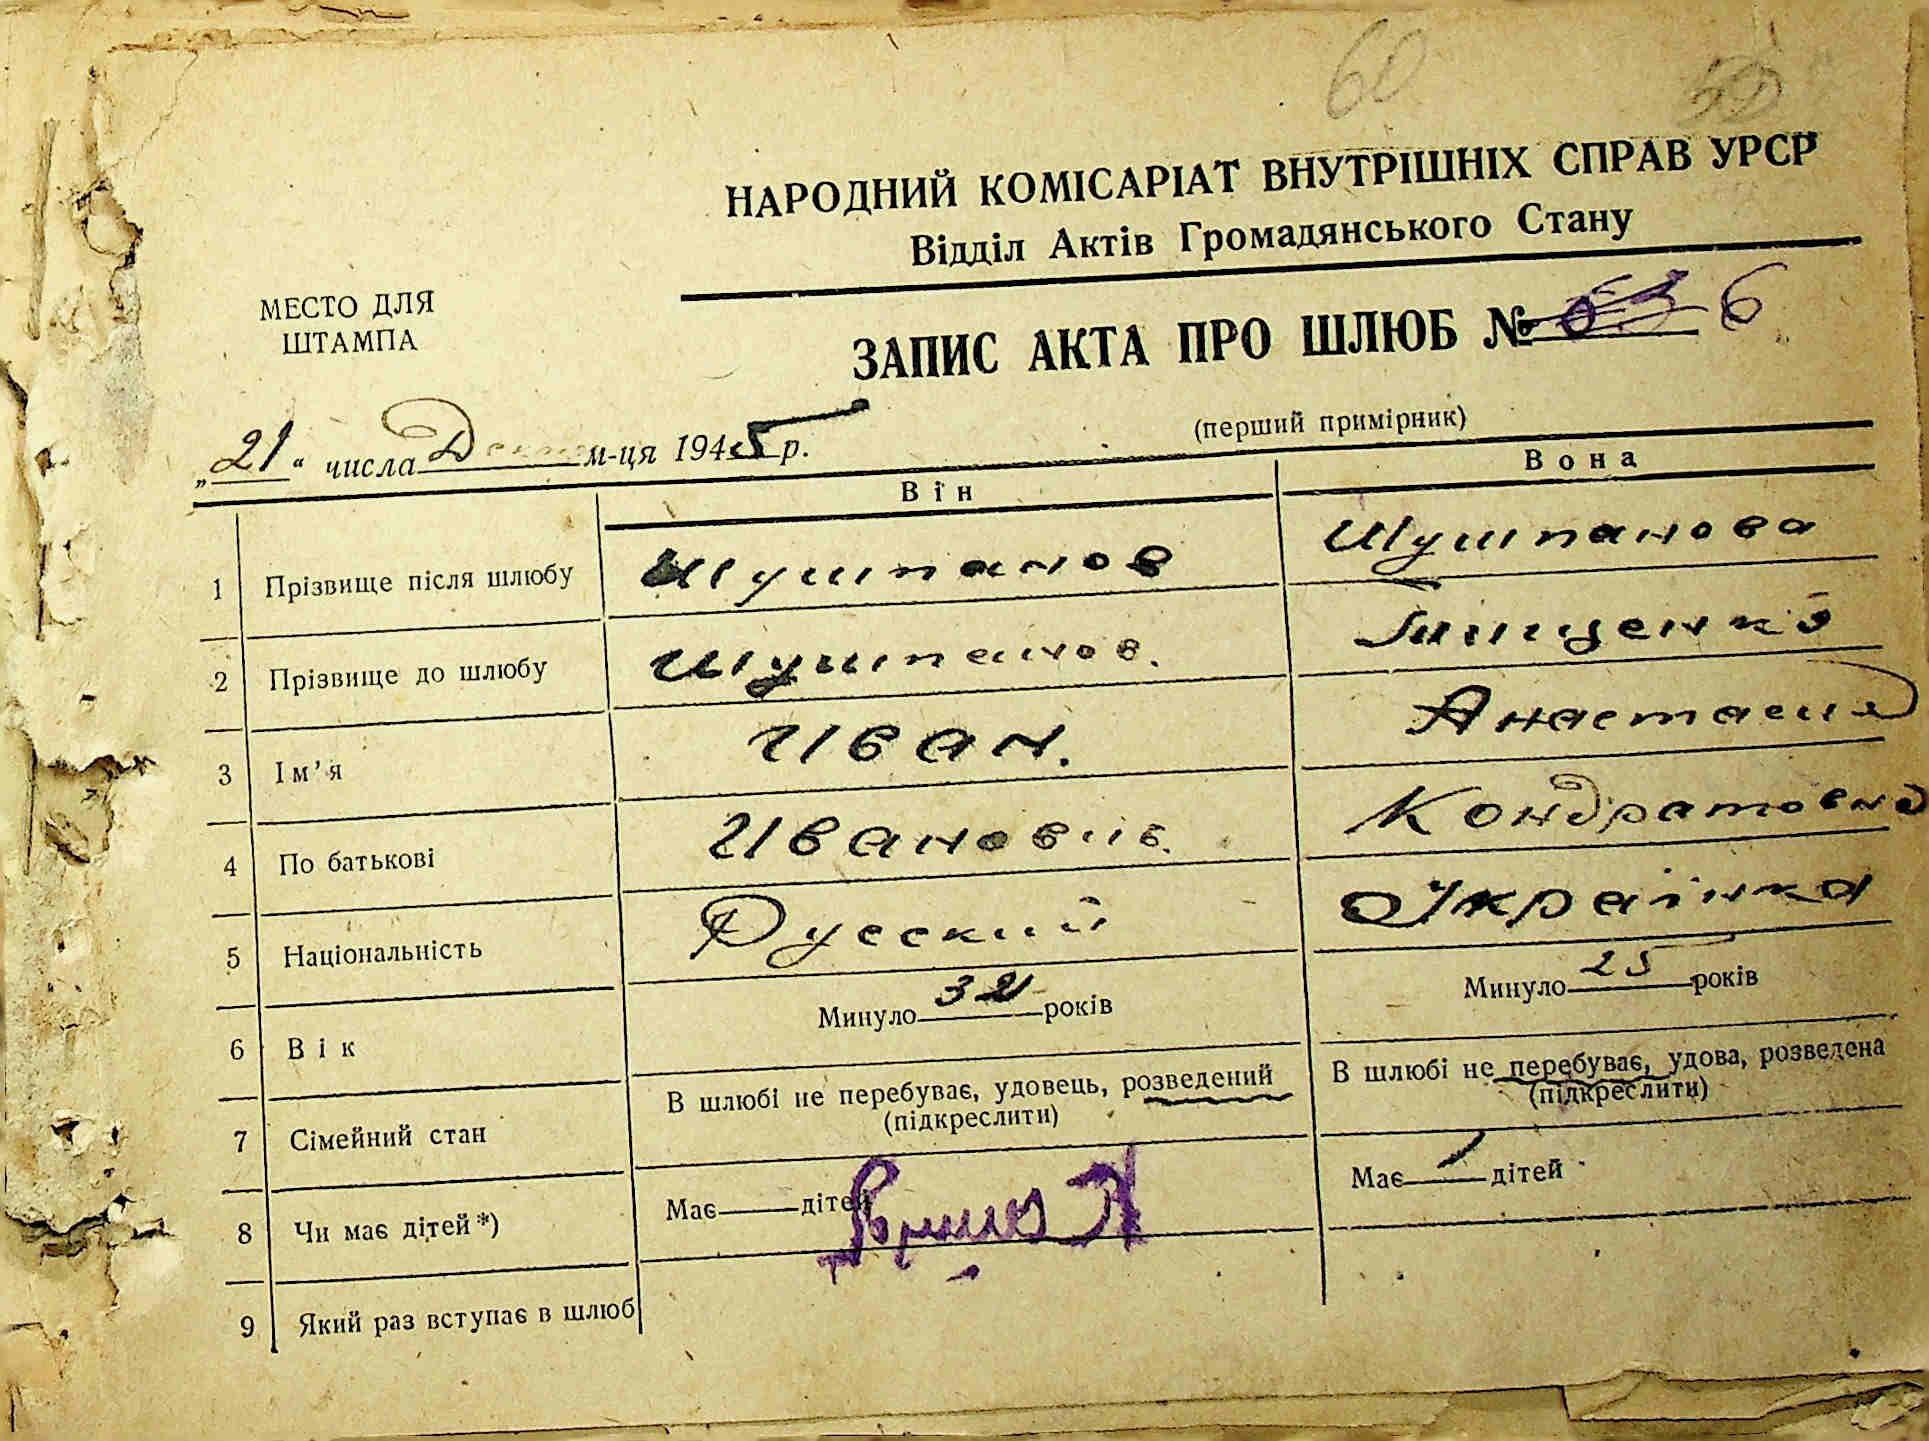 60
НАРОДНИЙ КОМІСАРІАТ ВНУТРІШНІХ СПРАВ УРСР
Відділ Актів Громадянського Стану
МЕСТО ДЛЯ
ШТАМПА
ЗАПИС АКТА ПРО ШЛЮБ № 6
(перший примірник)
„21“ числа м-ця 1945 р.
Він Вона
1 Прізвище після шлюбу Шушпанов Шушпанова
2 Прізвище до шлюбу Шушпанов.
3 Ім’я Иван. Анастасия
4 По батькові Иванович. Кондратовна
5 Національність Русский Українка
6 Вік Минуло років Минуло 25 років
7 Сімейний стан В шлюбі не перебуває, удовець, розведений В шлюбі не перебуває, удова, розведена
(підкреслити) (підкреслити)
8 Чи має дітей*) Має дітей Має дітей
9 Який раз вступає в шлюб